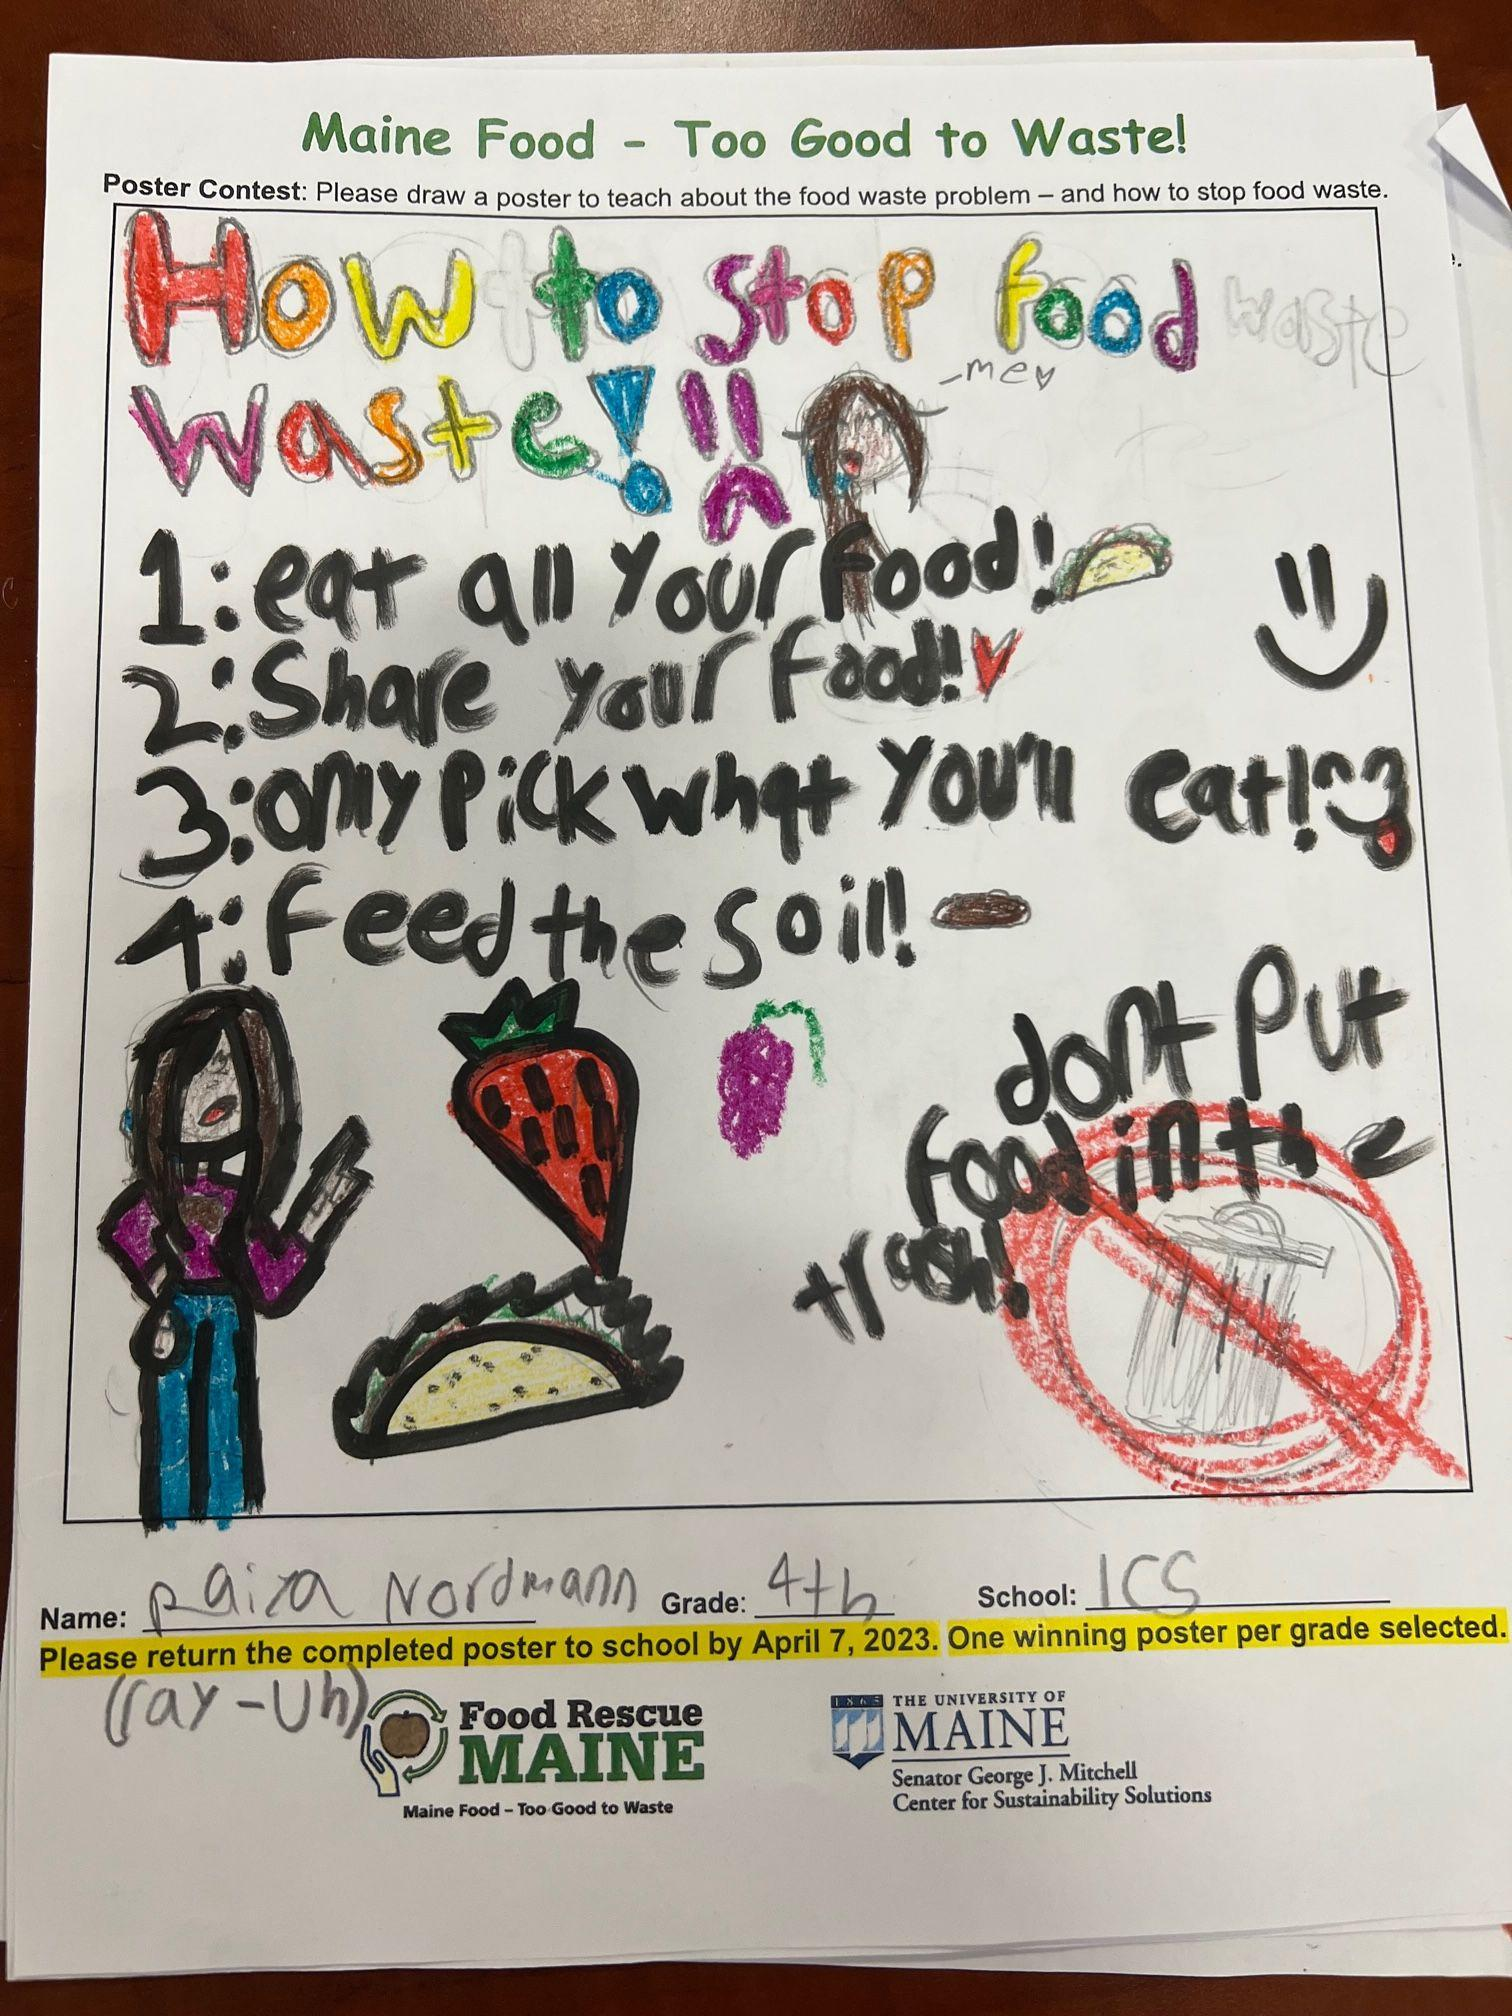 Maine Food - Too Good to Waste!
Poster Contest: Please draw a poster to teach about the food waste problem – and how to stop food waste.
How to stop food waste
waste!!!
-me
1: eat all your food!
2: Share your food!
3: only pick what you'll eat!
4: feed the soil!
dont put
food in the
trash!
Name: Raiza Nordmann Grade: 4th School: ICS
Please return the completed poster to school by April 7, 2023. One winning poster per grade selected.
(ray-uh)
Food Rescue
MAINE
Maine Food – Too Good to Waste
1865
THE UNIVERSITY OF
MAINE
Senator George J. Mitchell
Center for Sustainability Solutions